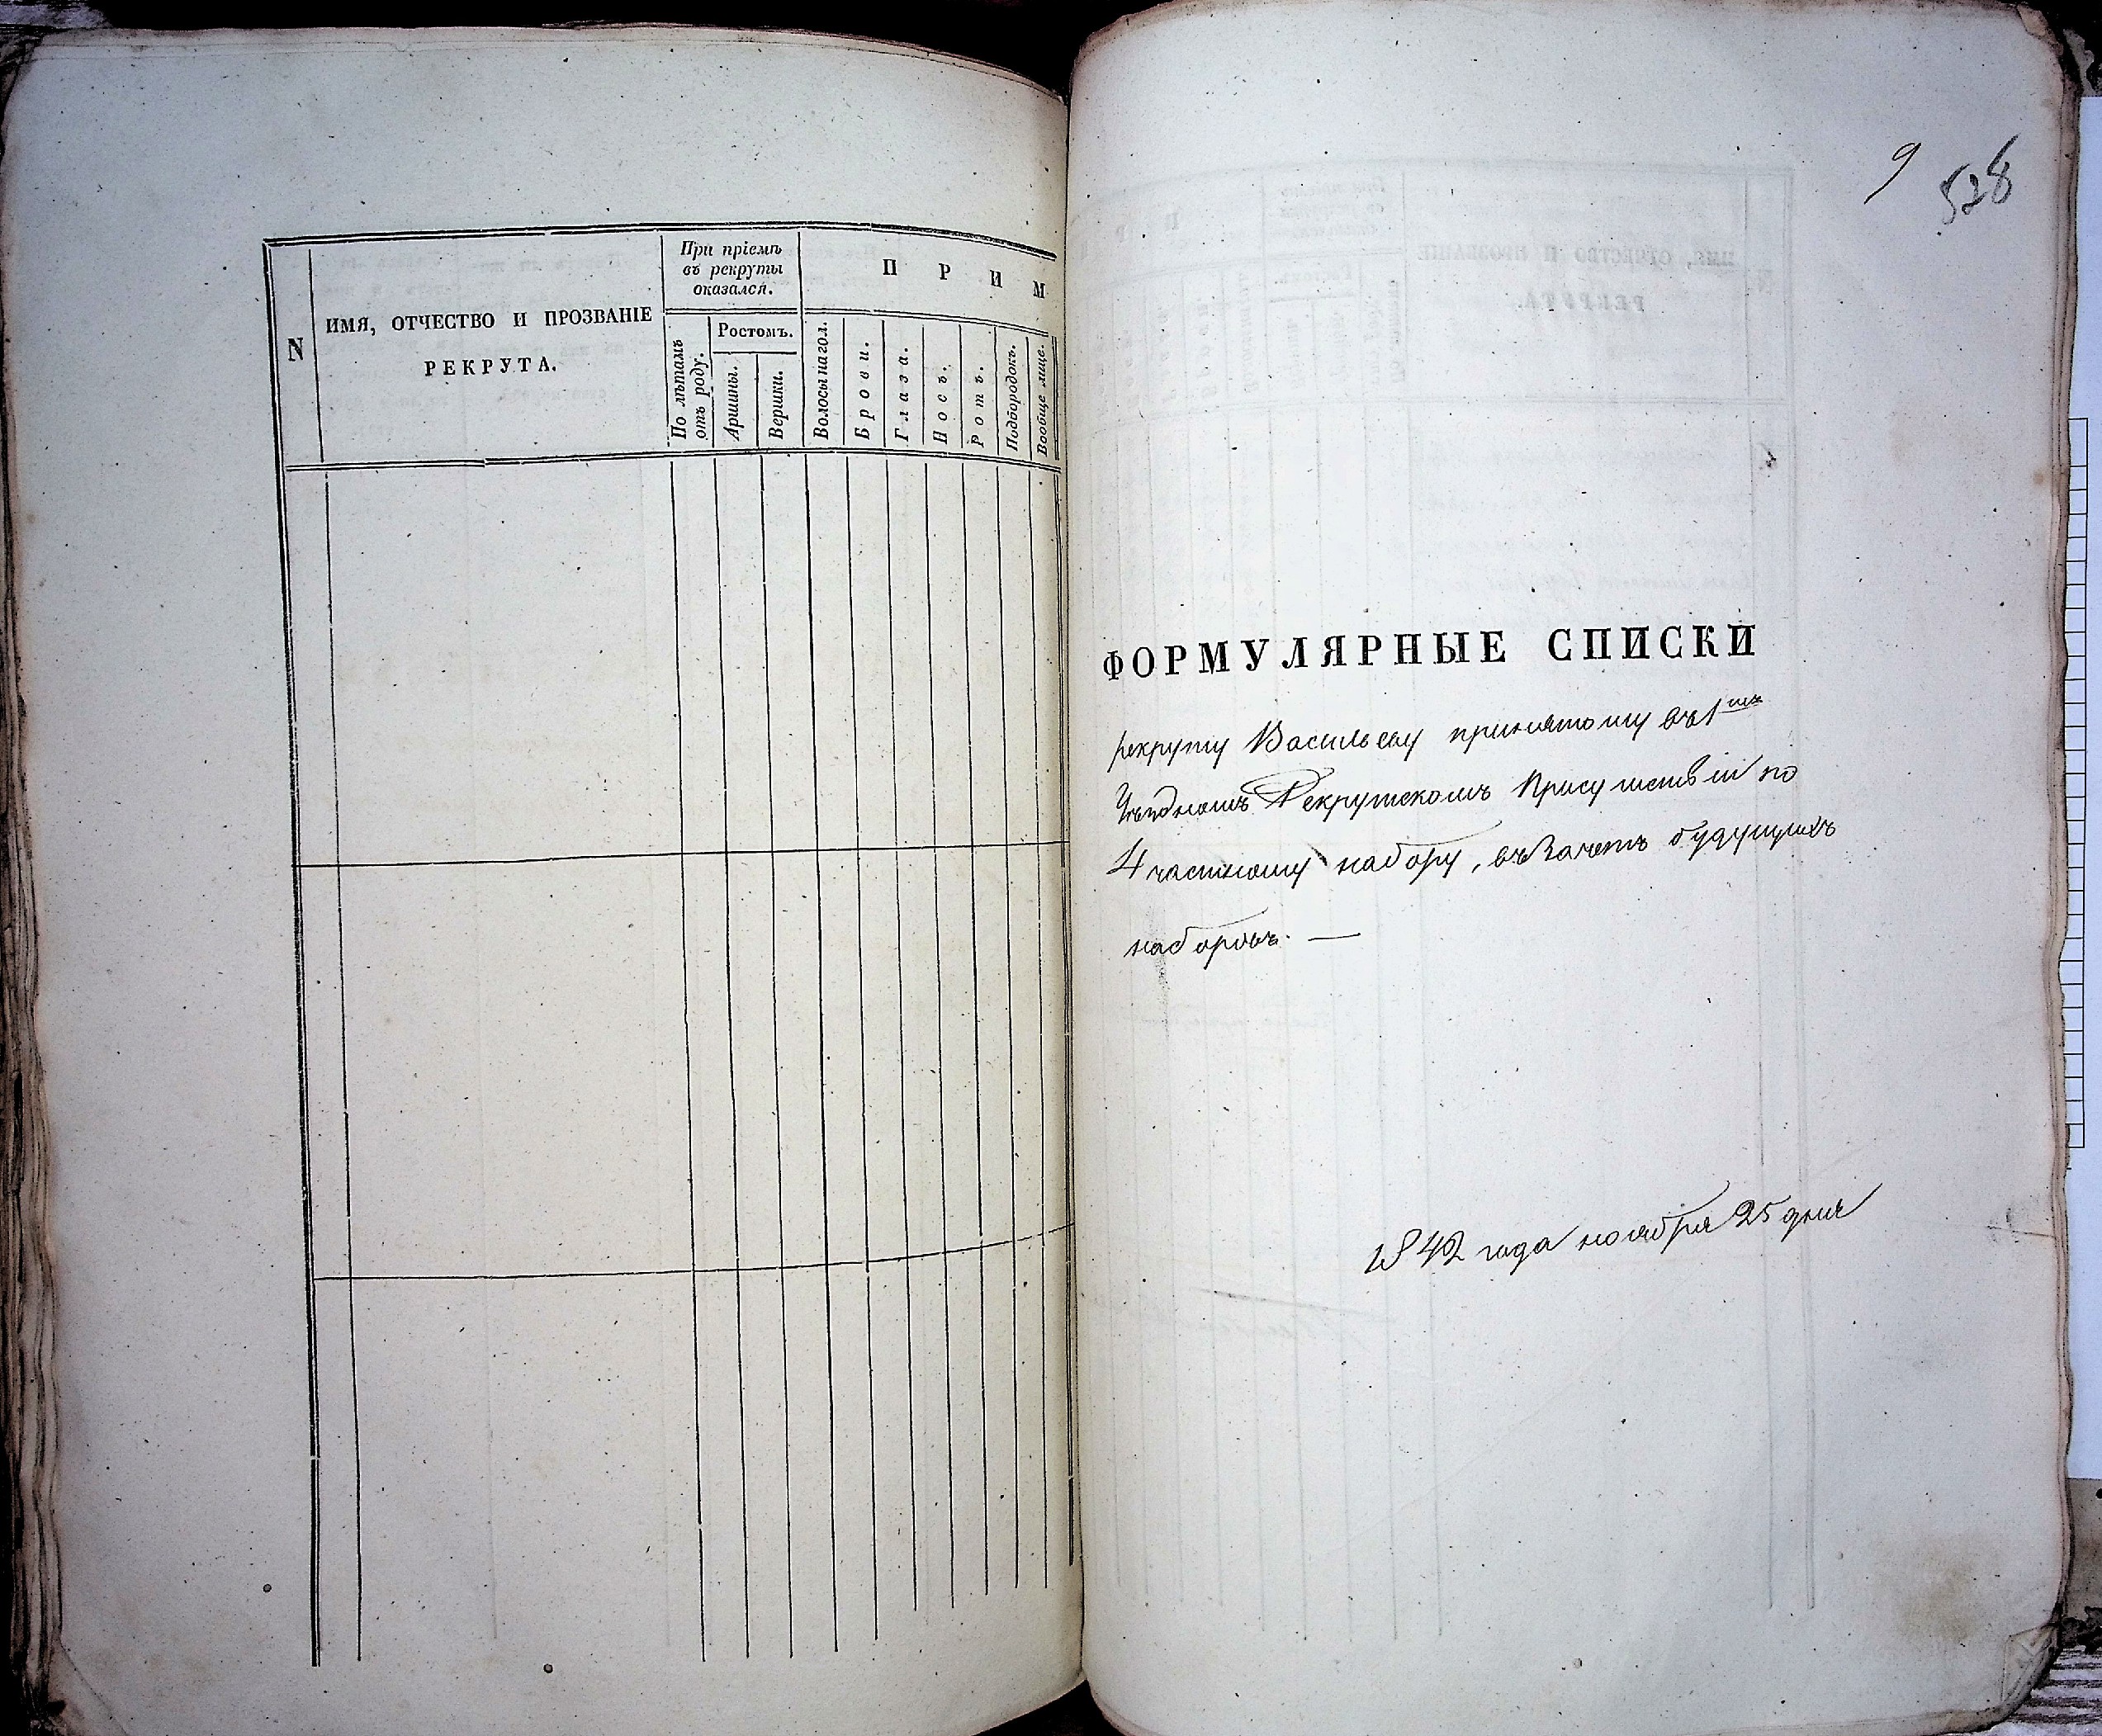 При пріемѣ
въ рекруты
оказался.
П Р И М
N
ИМЯ, ОТЧЕСТВО И ПРОЗВАНІЕ
РЕКРУТА.
По лѣтамъ
отъ роду.
Ростомъ.
Аршины.
Вершки.
Волосы на гол.
Брови.
Глаза.
Носъ.
Ротъ.
Подбородокъ.
Вообще лице.
9
528
ФОРМУЛЯРНЫЕ СПИСКИ
рекруту Васильеву принятому въ 1мъ
Уѣздномъ Рекрутскомъ Присутствіи по
4 частному набору, въ зачетъ будущихъ
наборовъ. —
1842 года ноября 25 дня